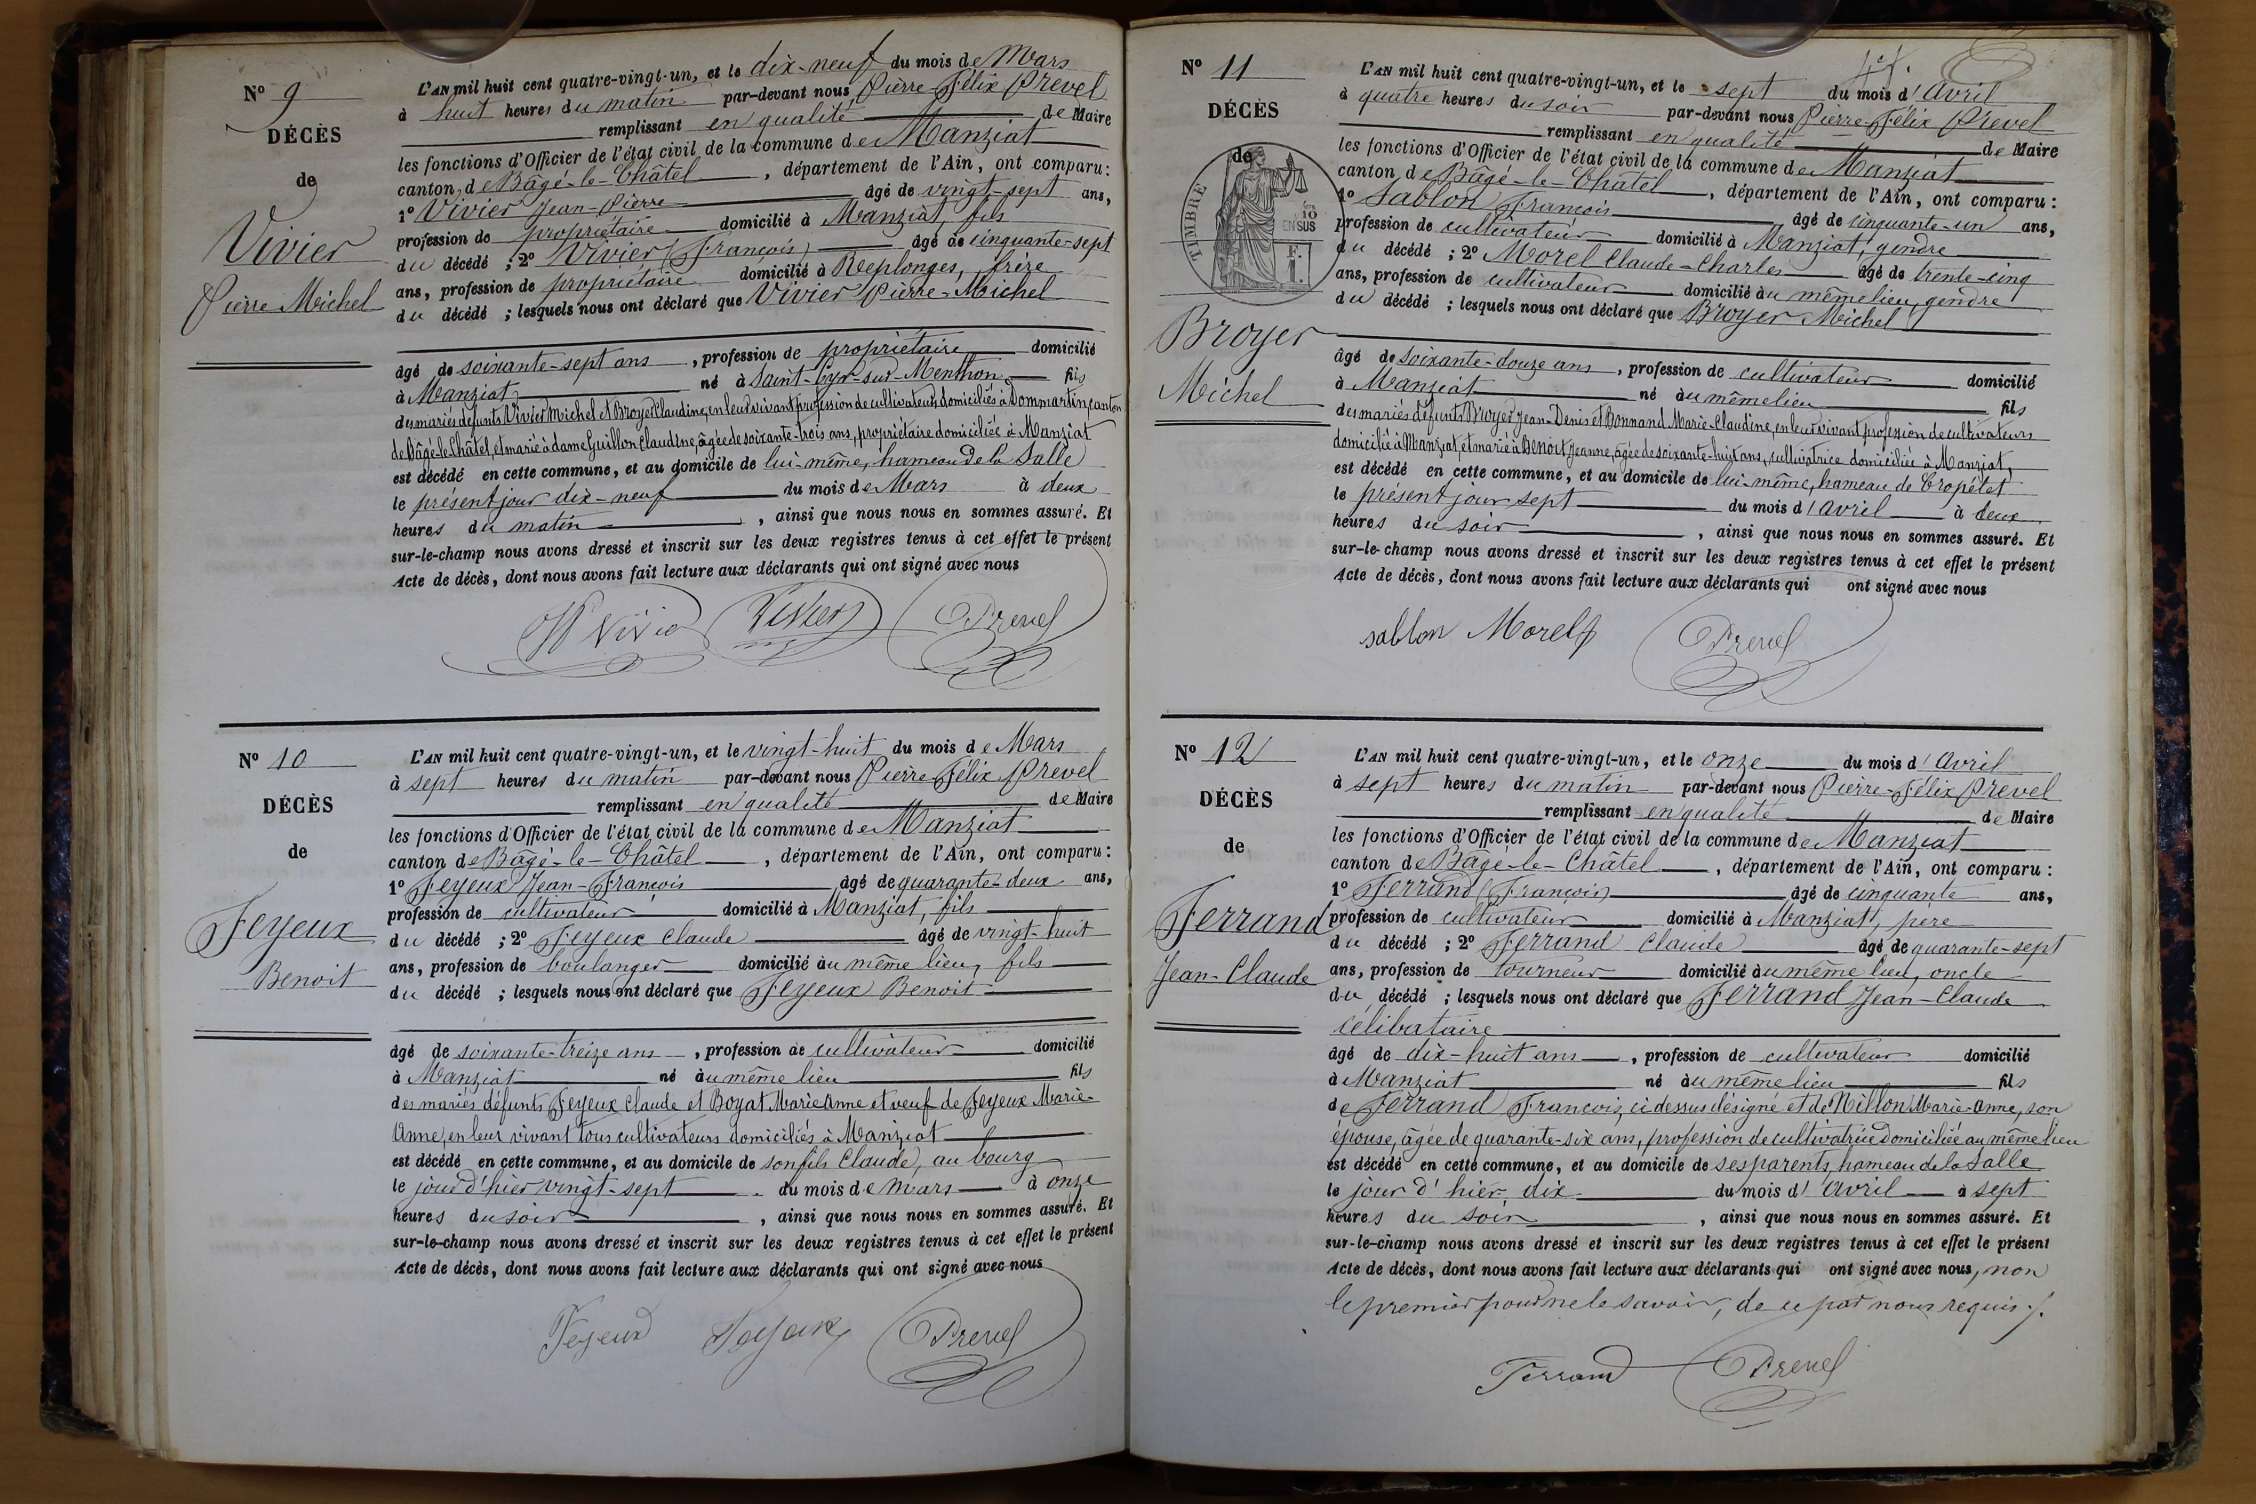 N° 9
DÉCÈS
de
Vivier
Pierre-Michel
L'AN mil huit cent quatre-vingt-un, et le dix-neuf du mois de Mars
à huit heures du matin par-devant nous Pierre-Félix Prevel
remplissant en qualité de Maire
les fonctions d'Officier de l'état civil de la commune de Manziat
canton de Bâgé-le-Châtel, département de l'Ain, ont comparu:
1° Vivier Jean-Pierre âgé de vingt-sept ans,
profession de propriétaire domicilié à Manziat, fils
du décédé ; 2° Vivier (François) âgé de cinquante-sept
ans, profession de propriétaire domicilié à Replonges, frère
du décédé ; lesquels nous ont déclaré que Vivier Pierre-Michel
âgé de soixante-sept ans, profession de propriétaire domicilié
à Manziat né à Saint-Cyr-sur-Menthon fils
des mariés défunts Vivier Michel et Broyer Claudine, en leur vivant profession de cultivateurs domiciliés à Dommartin, canton
de Bâgé-le-Châtel, et marié à dame Guillon Claudine, âgée de soixante-trois ans, propriétaire domiciliée à Manziat
est décédé en cette commune, et au domicile de lui-même, hameau de la Salle
le présent jour dix-neuf du mois de Mars à deux
heures du matin, ainsi que nous nous en sommes assuré. Et
sur-le-champ nous avons dressé et inscrit sur les deux registres tenus à cet effet le présent
Acte de décès, dont nous avons fait lecture aux déclarants qui ont signé avec nous
Vivier Prevel
N° 10
DÉCÈS
de
Feyeux
Benoit
L'AN mil huit cent quatre-vingt-un, et le vingt-huit du mois de Mars
à sept heures du matin par-devant nous Pierre-Félix Prevel
remplissant en qualité de Maire
les fonctions d'Officier de l'état civil de la commune de Manziat
canton de Bâgé-le-Châtel, département de l'Ain, ont comparu:
1° Feyeux Jean-François âgé de quarante-deux ans,
profession de cultivateur domicilié à Manziat, fils
du décédé ; 2° Feyeux Claude âgé de vingt-huit
ans, profession de boulanger domicilié au même lieu, fils
du décédé ; lesquels nous ont déclaré que Feyeux Benoit
âgé de soixante-treize ans, profession de cultivateur domicilié
à Manziat né au même lieu fils
des mariés défunts Feyeux Claude et Boyat Marie Anne et veuf de Feyeux Marie-
Anne, en leur vivant tous cultivateurs domiciliés à Manziat
est décédé en cette commune, et au domicile de son fils Claude, au bourg
le jour d'hier vingt-sept du mois de Mars à onze
heures du soir, ainsi que nous nous en sommes assuré. Et
sur-le-champ nous avons dressé et inscrit sur les deux registres tenus à cet effet le présent
Acte de décès, dont nous avons fait lecture aux déclarants qui ont signé avec nous
Feyeux Feyeux Prevel
N° 11
DÉCÈS
de
TIMBRE
Broyer
Michel
L'AN mil huit cent quatre-vingt-un, et le sept du mois d'Avril
à quatre heures du soir par-devant nous Pierre-Félix Prevel
remplissant en qualité de Maire
les fonctions d'Officier de l'état civil de la commune de Manziat
canton de Bâgé-le-Châtel, département de l'Ain, ont comparu:
1° Sablon François âgé de cinquante-un ans,
profession de cultivateur domicilié à Manziat, gendre
du décédé ; 2° Morel Claude-Charles âgé de trente-cinq
ans, profession de cultivateur domicilié au même lieu, gendre
du décédé ; lesquels nous ont déclaré que Broyer Michel
âgé de soixante-douze ans, profession de cultivateur domicilié
à Manziat né au même lieu fils
des mariés défunts Broyer Jean-Denis et Bonnand Marie-Claudine, en leur vivant profession de cultivateurs
domiciliés à Manziat, et marié à Benoit Jeanne, âgée de soixante-huit ans, cultivatrice domiciliée à Manziat,
est décédé en cette commune, et au domicile de lui-même, hameau de Cropétet
le présent jour sept du mois d'Avril à deux
heures du soir, ainsi que nous nous en sommes assuré. Et
sur-le-champ nous avons dressé et inscrit sur les deux registres tenus à cet effet le présent
Acte de décès, dont nous avons fait lecture aux déclarants qui ont signé avec nous
sablon Morel Prevel
N° 12
DÉCÈS
de
Ferrand
Jean-Claude
L'AN mil huit cent quatre-vingt-un, et le onze du mois d'Avril
à sept heures du matin par-devant nous Pierre-Félix Prevel
remplissant en qualité de Maire
les fonctions d'Officier de l'état civil de la commune de Manziat
canton de Bâgé-le-Châtel, département de l'Ain, ont comparu:
1° Ferrand (François) âgé de cinquante ans,
profession de cultivateur domicilié à Manziat, père
du décédé ; 2° Ferrand Claude âgé de quarante-sept
ans, profession de tourneur domicilié au même lieu, oncle
du décédé ; lesquels nous ont déclaré que Ferrand Jean-Claude
célibataire
âgé de dix-huit ans, profession de cultivateur domicilié
à Manziat né au même lieu fils
de Ferrand François, ci dessus désigné et de Nillon Marie-Anne, son
épouse, âgée de quarante-six ans, profession de cultivatrice domiciliée au même lieu
est décédé en cette commune, et au domicile de ses parents, hameau de la Salle
le jour d'hier dix du mois d'Avril à sept
heures du soir, ainsi que nous nous en sommes assuré. Et
sur-le-champ nous avons dressé et inscrit sur les deux registres tenus à cet effet le présent
Acte de décès, dont nous avons fait lecture aux déclarants qui ont signé avec nous, non
le premier pour ne le savoir, de ce par nous requis ./.
Ferrand Prevel